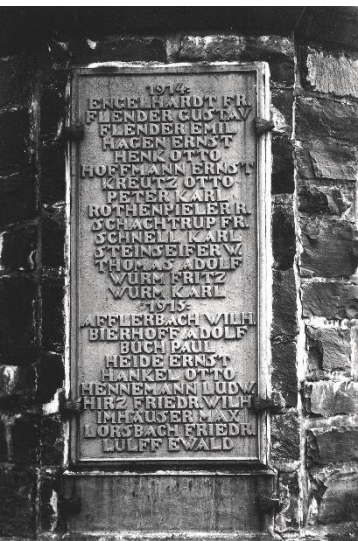 ·1914·
ENGELHARDT FR.
FLENDER GUSTAV
FLENDER EMIL
HAGEN ERNST
HENK OTTO
HOFFMANN ERNST
KREUTZ OTTO
PETER KARL
ROTHENPIELER R.
SCHACHTRUP FR.
SCHNELL KARL
STEINSEIFER W.
THOMAS ADOLF
WURM FRITZ
WURM KARL
·1915·
AFFLERBACH WILH.
BIERHOFF ADOLF
BUCH PAUL
HEIDE ERNST
HANKEL OTTO
HENNEMANN LUDW.
HIRZ FRIEDR. WILH.
IMHÄUSER MAX
LORSBACH FRIEDR.
LULFF EWALD